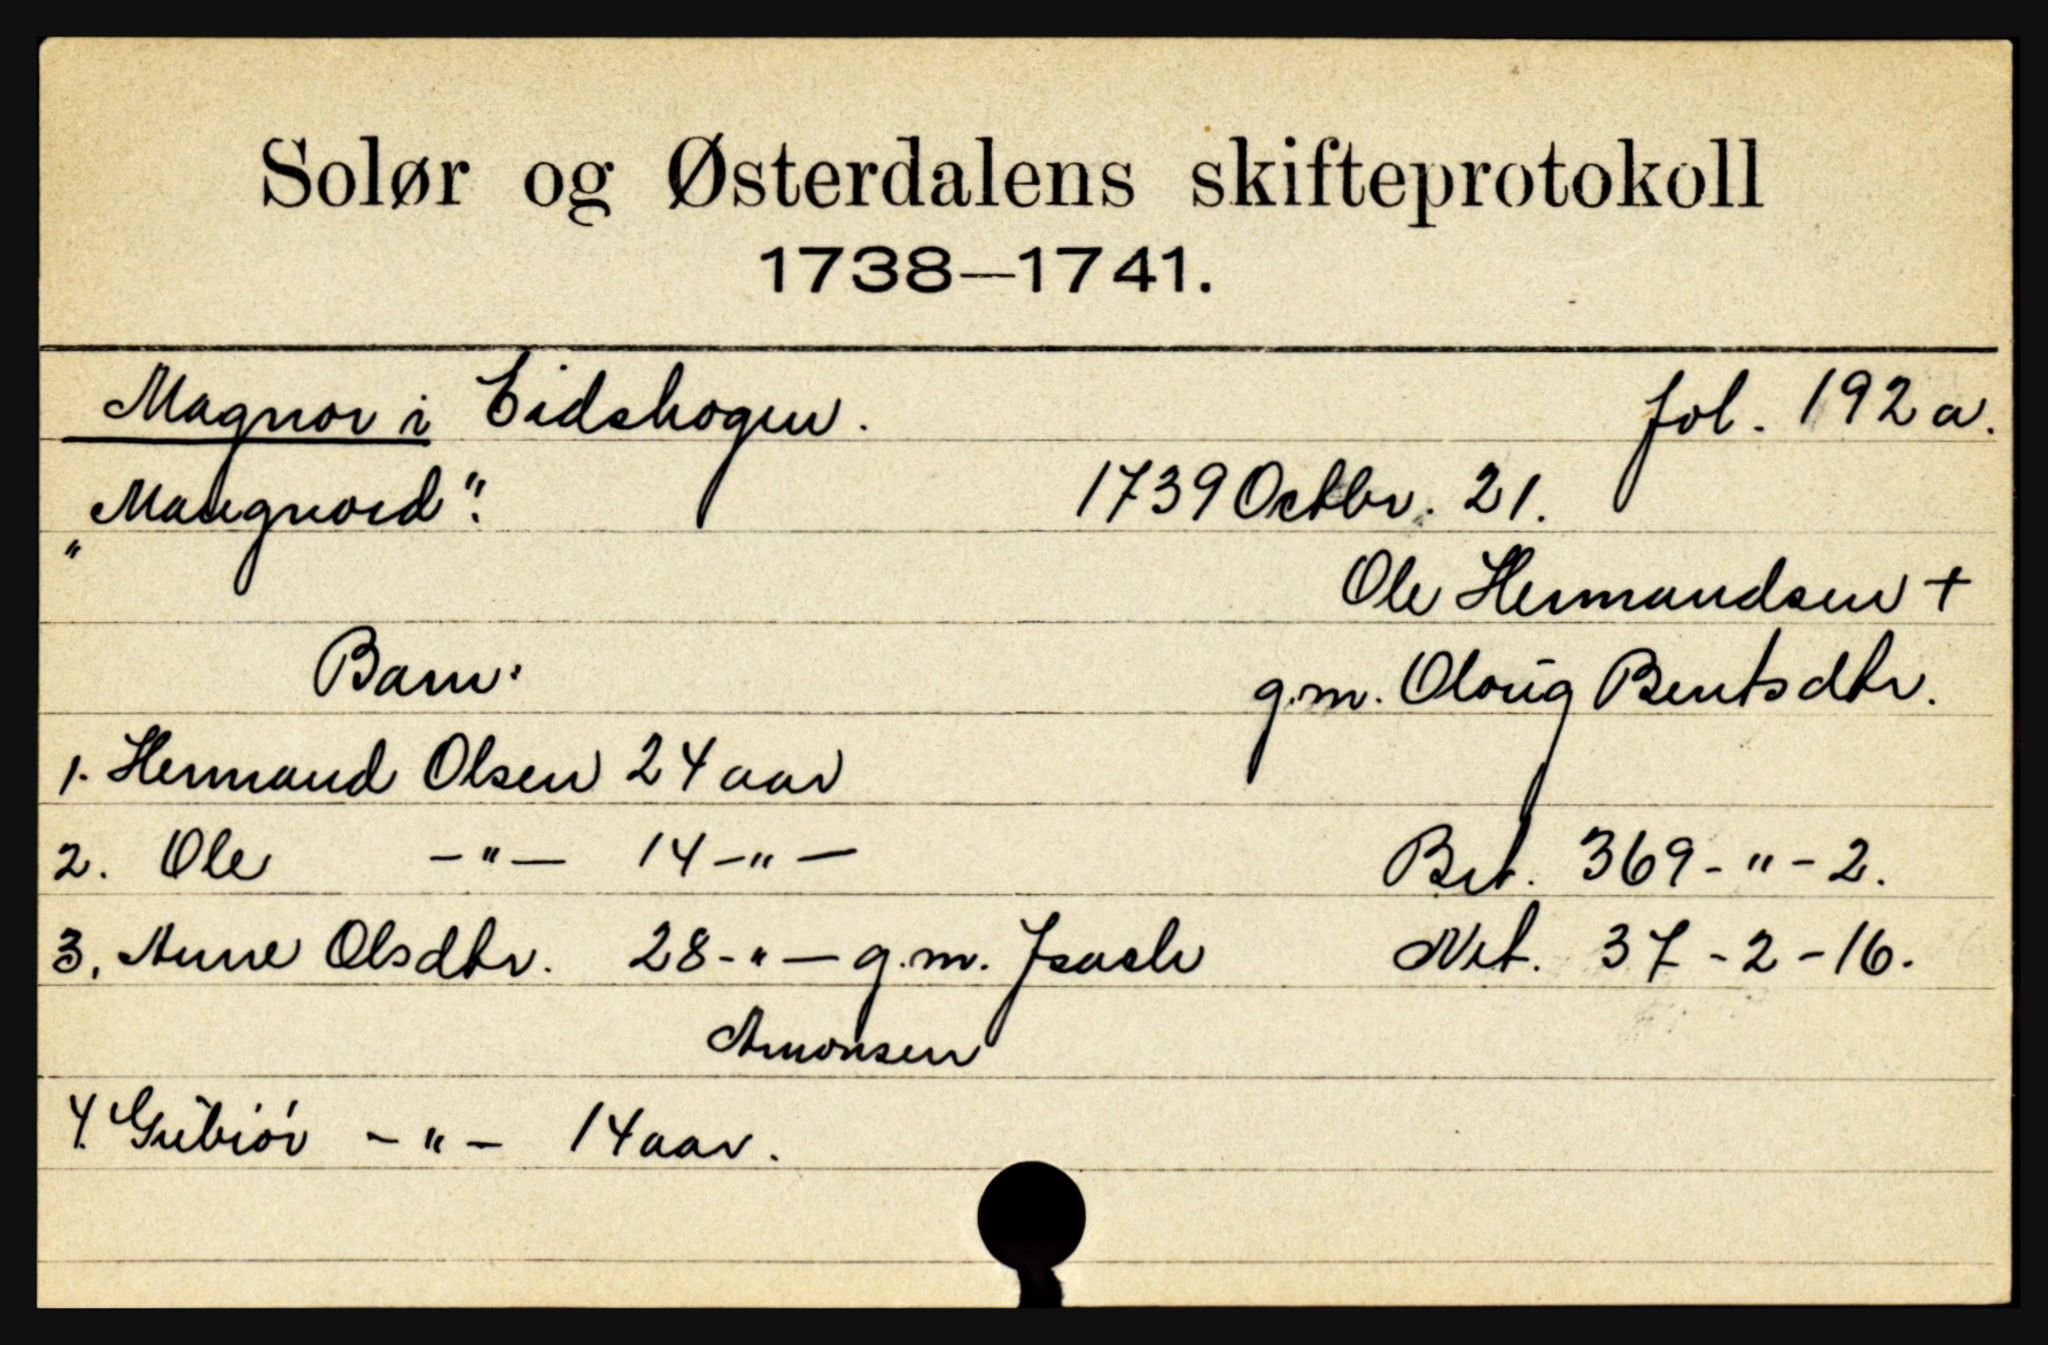 Solør og Østerdalens skifteprotokoll
1738—1741.
Magnor i Eidskogen. fol. 192 a.
"Maugnord". 1739 Octbr. 21.
Ole Hermandsen +
Barn: g.m. Oloug Bentsdtr.
1. Hermand Olsen 24 aar
2. Ole -"- 14 -"- Brt. 369 - " - 2.
3. Anne Olsdtr. 28 -"- g.m. Isach Net. 37 - 2 - 16.
Amonsen
4. Gubiør -"- 14 aar.